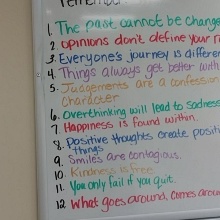 1. The past cannot be change
2. opinions don't define your r
3. Everyone's journey is differen
4. Things always get better with
5. Judgements are a confession
character
6. overthinking will lead to sadness
7. Happiness is found within.
8. Positive thoughts create posit
things
9. Smiles are contagious.
10. Kindness is free
11. You only fail if you quit.
12. What goes around, comes aroun